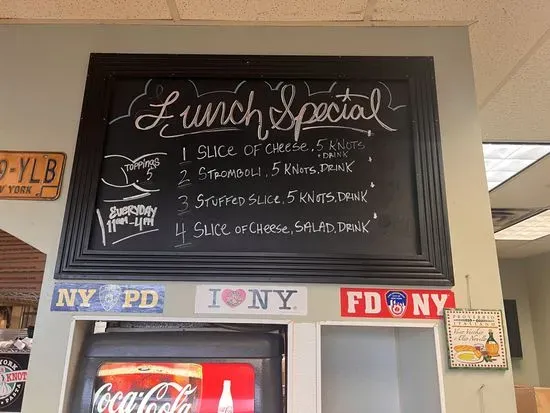 Lunch Special
1 SLICE OF CHEESE, 5 KNOTS
+ DRINK
2 STROMBOLI, 5 KNOTS, DRINK
3 STUFFED SLICE, 5 KNOTS, DRINK
4 SLICE OF CHEESE, SALAD, DRINK
TOPPINGS
5
EVERYDAY
11AM-4PM
9-YLB
YORK
NYPD
I NY
FDNY
Coca-Cola
KNOT
PASTA